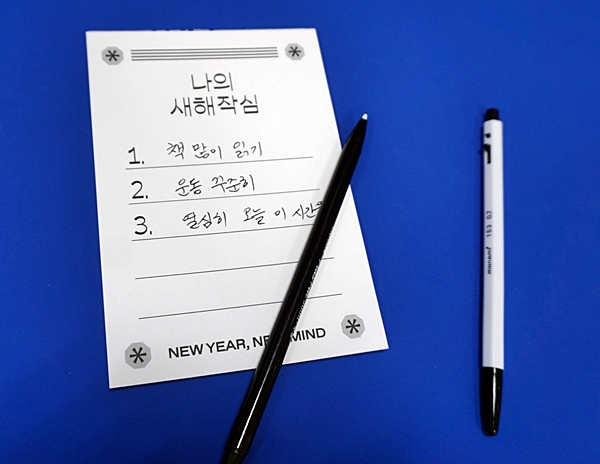 나의
새해작심
1. 책 많이 읽기
2. 운동 꾸준히
3. 열심히 오늘 이 시간을
NEW YEAR, NEW MIND
monami 153 G2